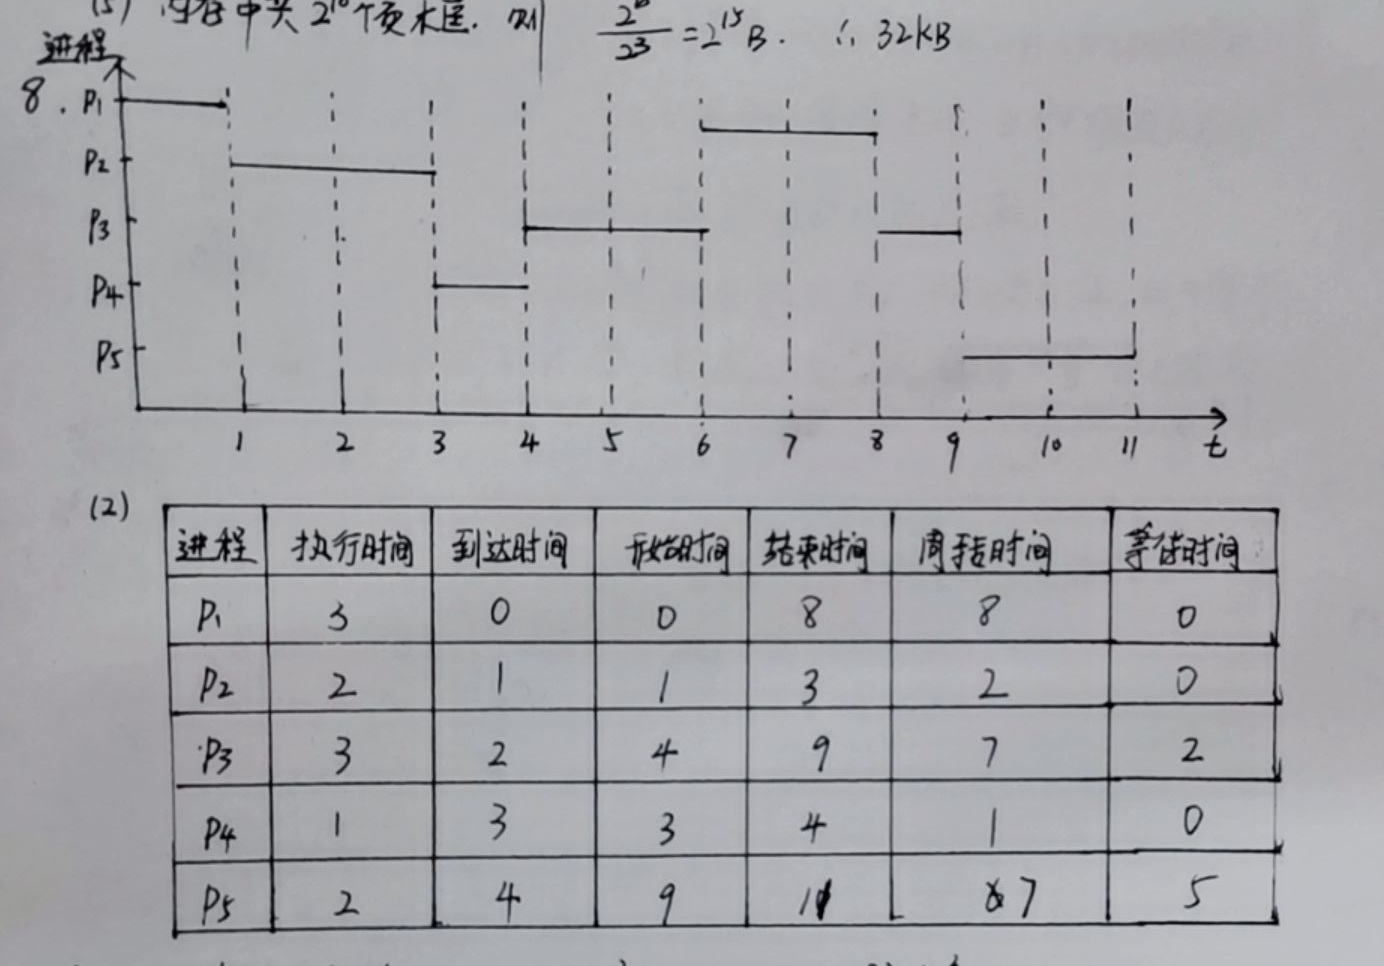 (5) 内存中共 2^16 个页框. 则 2^18/2^3 = 2^15 B. ∴ 32KB
进程
8. P1
P2
P3
P4
P5
1 2 3 4 5 6 7 8 9 10 11 t
(2)
进程 执行时间 到达时间 开始时间 结束时间 周转时间 等待时间
P1 3 0 0 8 8 0
P2 2 1 1 3 2 0
P3 3 2 4 9 7 2
P4 1 3 3 4 1 0
P5 2 4 9 11 7 5